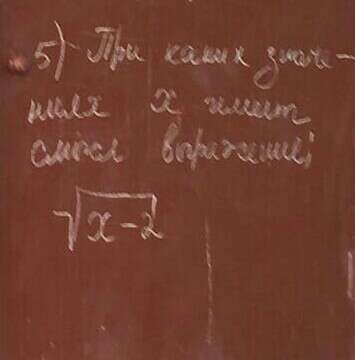 5) При каких значе-
ниях x имеет
смысл выражение;
√x-2